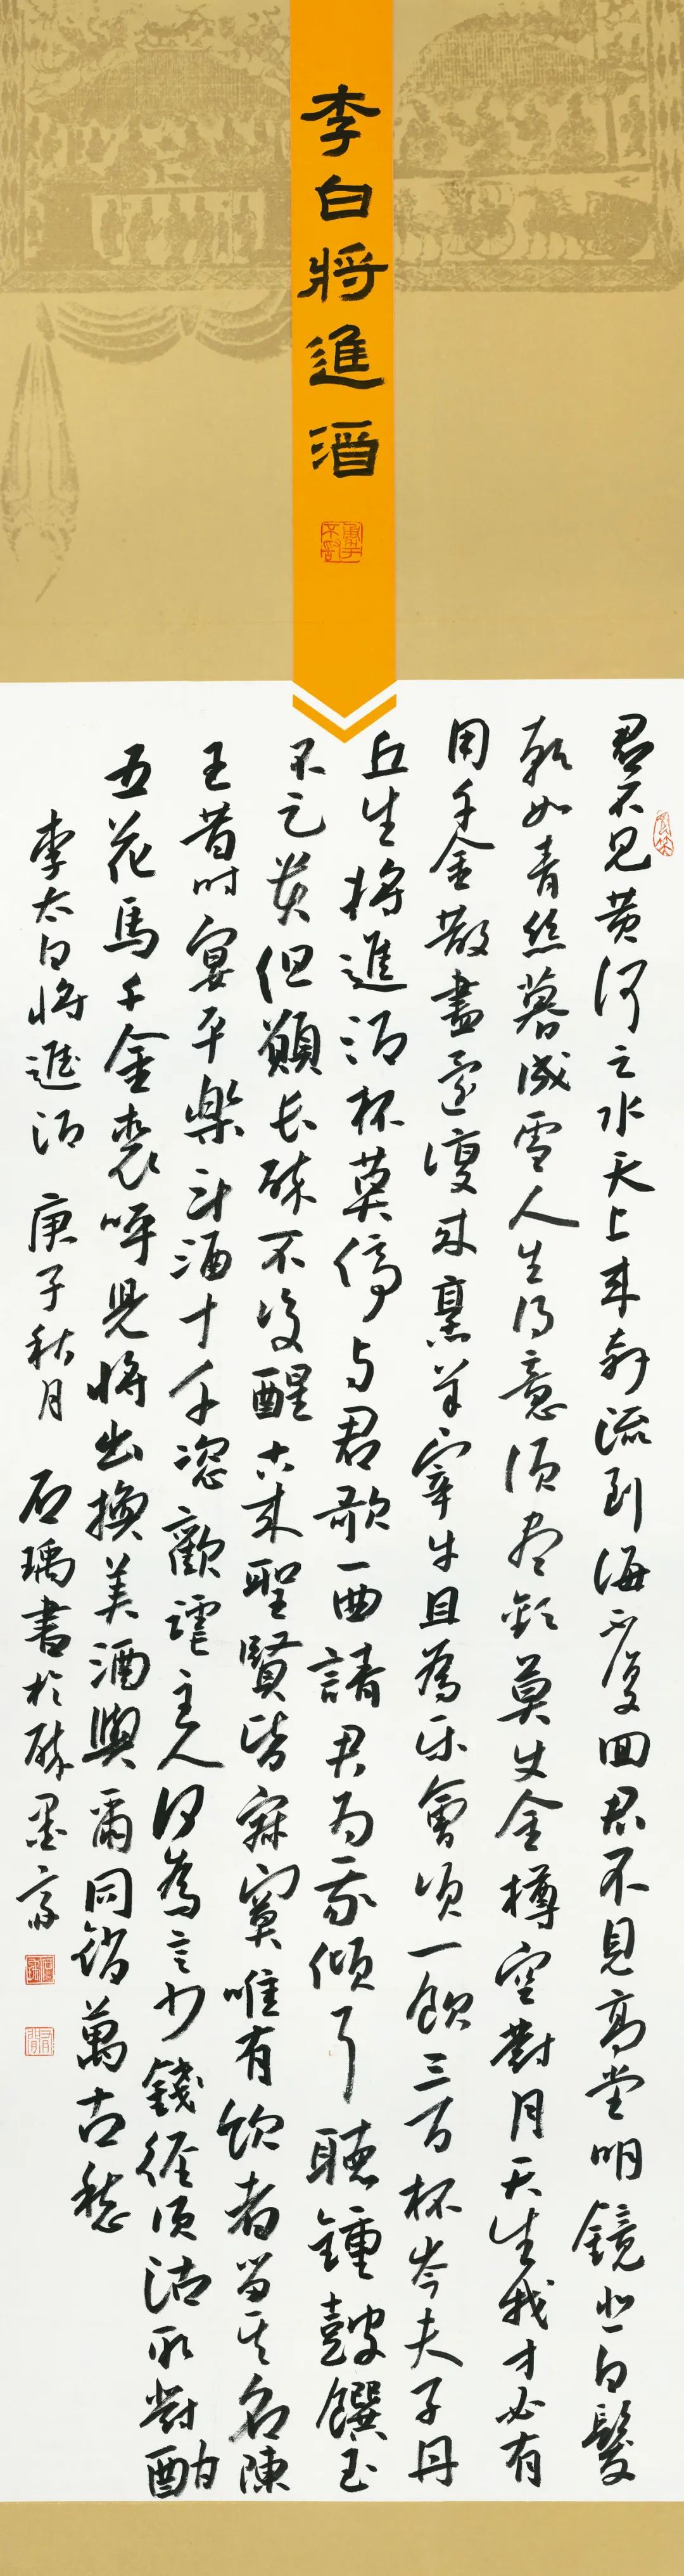 李白將進酒
君不見黄河之水天上来奔流到海不復回君不見高堂明鏡悲白髮
朝如青丝暮成雪人生得意须尽歡莫使金樽空對月天生我才必有
用千金散盡還復来烹羊宰牛且為乐會須一飲三百杯岑夫子丹
丘生將進酒杯莫停与君歌一曲請君为我傾耳聽鍾鼓饌玉
不足贵但願长醉不復醒古来聖賢皆寂寞唯有饮者留其名陳
王昔时宴平樂斗酒十千恣歡謔主人何為言少錢徑須沽取對酌
五花馬千金裘呼兒將出換美酒與爾同銷萬古愁
李太白將進酒 庚子秋月 石瑀書於醉墨斋